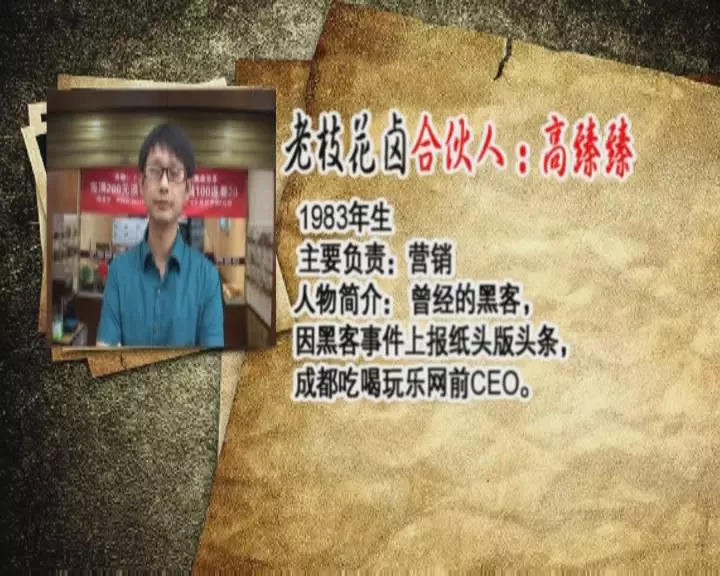 老枝花卤合伙人：高臻臻
1983年生
主要负责：营销
人物简介：曾经的黑客，
因黑客事件上报纸头版头条，
成都吃喝玩乐网前CEO。